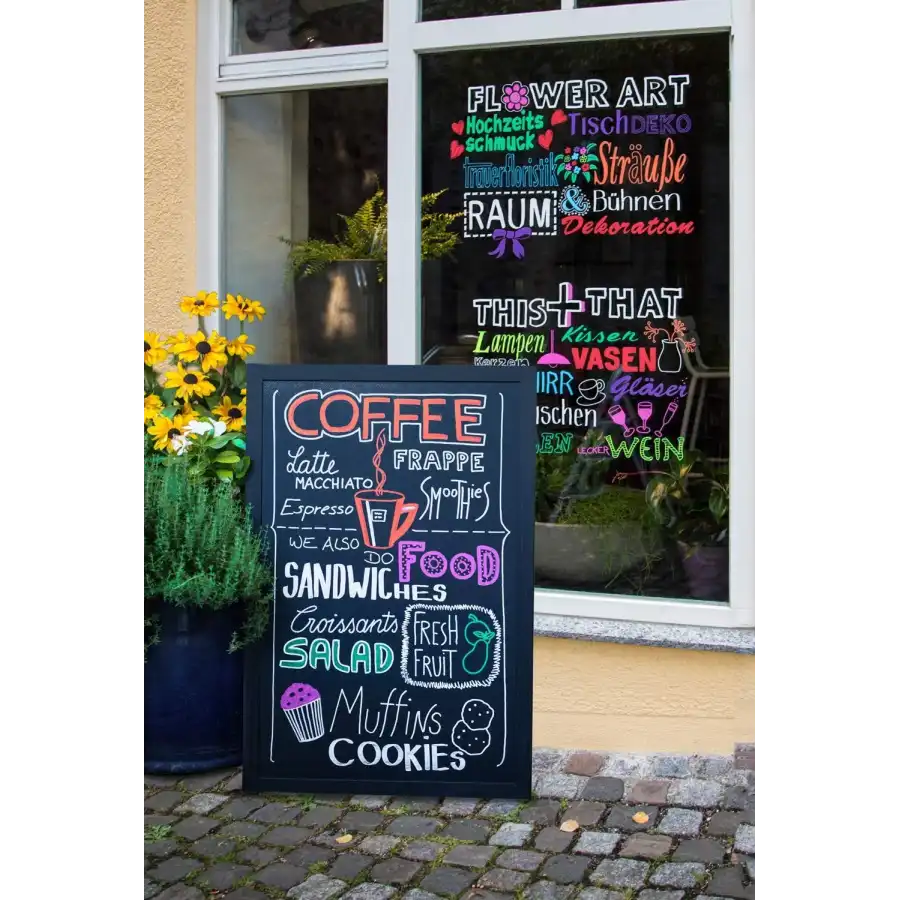 FLOWER ART
Hochzeits TischDEKO
schmuck
Trauerfloristik Sträuße
RAUM & Bühnen
Dekoration
THIS + THAT
Lampen Kissen
Kerzen VASEN
IRR Gläser
ischen
EN LECKER WEIN
COFFEE
Latte FRAPPE
MACCHIATO
Espresso SMOOTHIES
WE ALSO
DO FOOD
SANDWICHES
Croissants FRESH
SALAD FRUIT
MUFFINS
COOKIES